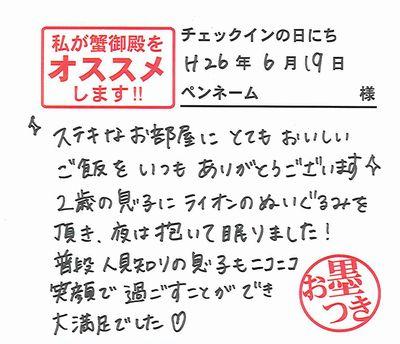 私が蟹御殿を
オススメ
します!!
チェックインの日にち
H26年 6月19日
ペンネーム 様
ステキなお部屋に とても おいしい
ご飯を いつも ありがとうございます
2歳の息子に ライオンの ぬいぐるみを
頂き、夜は抱いて眠りました!
普段 人見知りの息子もニコニコ
笑顔で 過ごすことができ
大満足でした♡
お墨つき